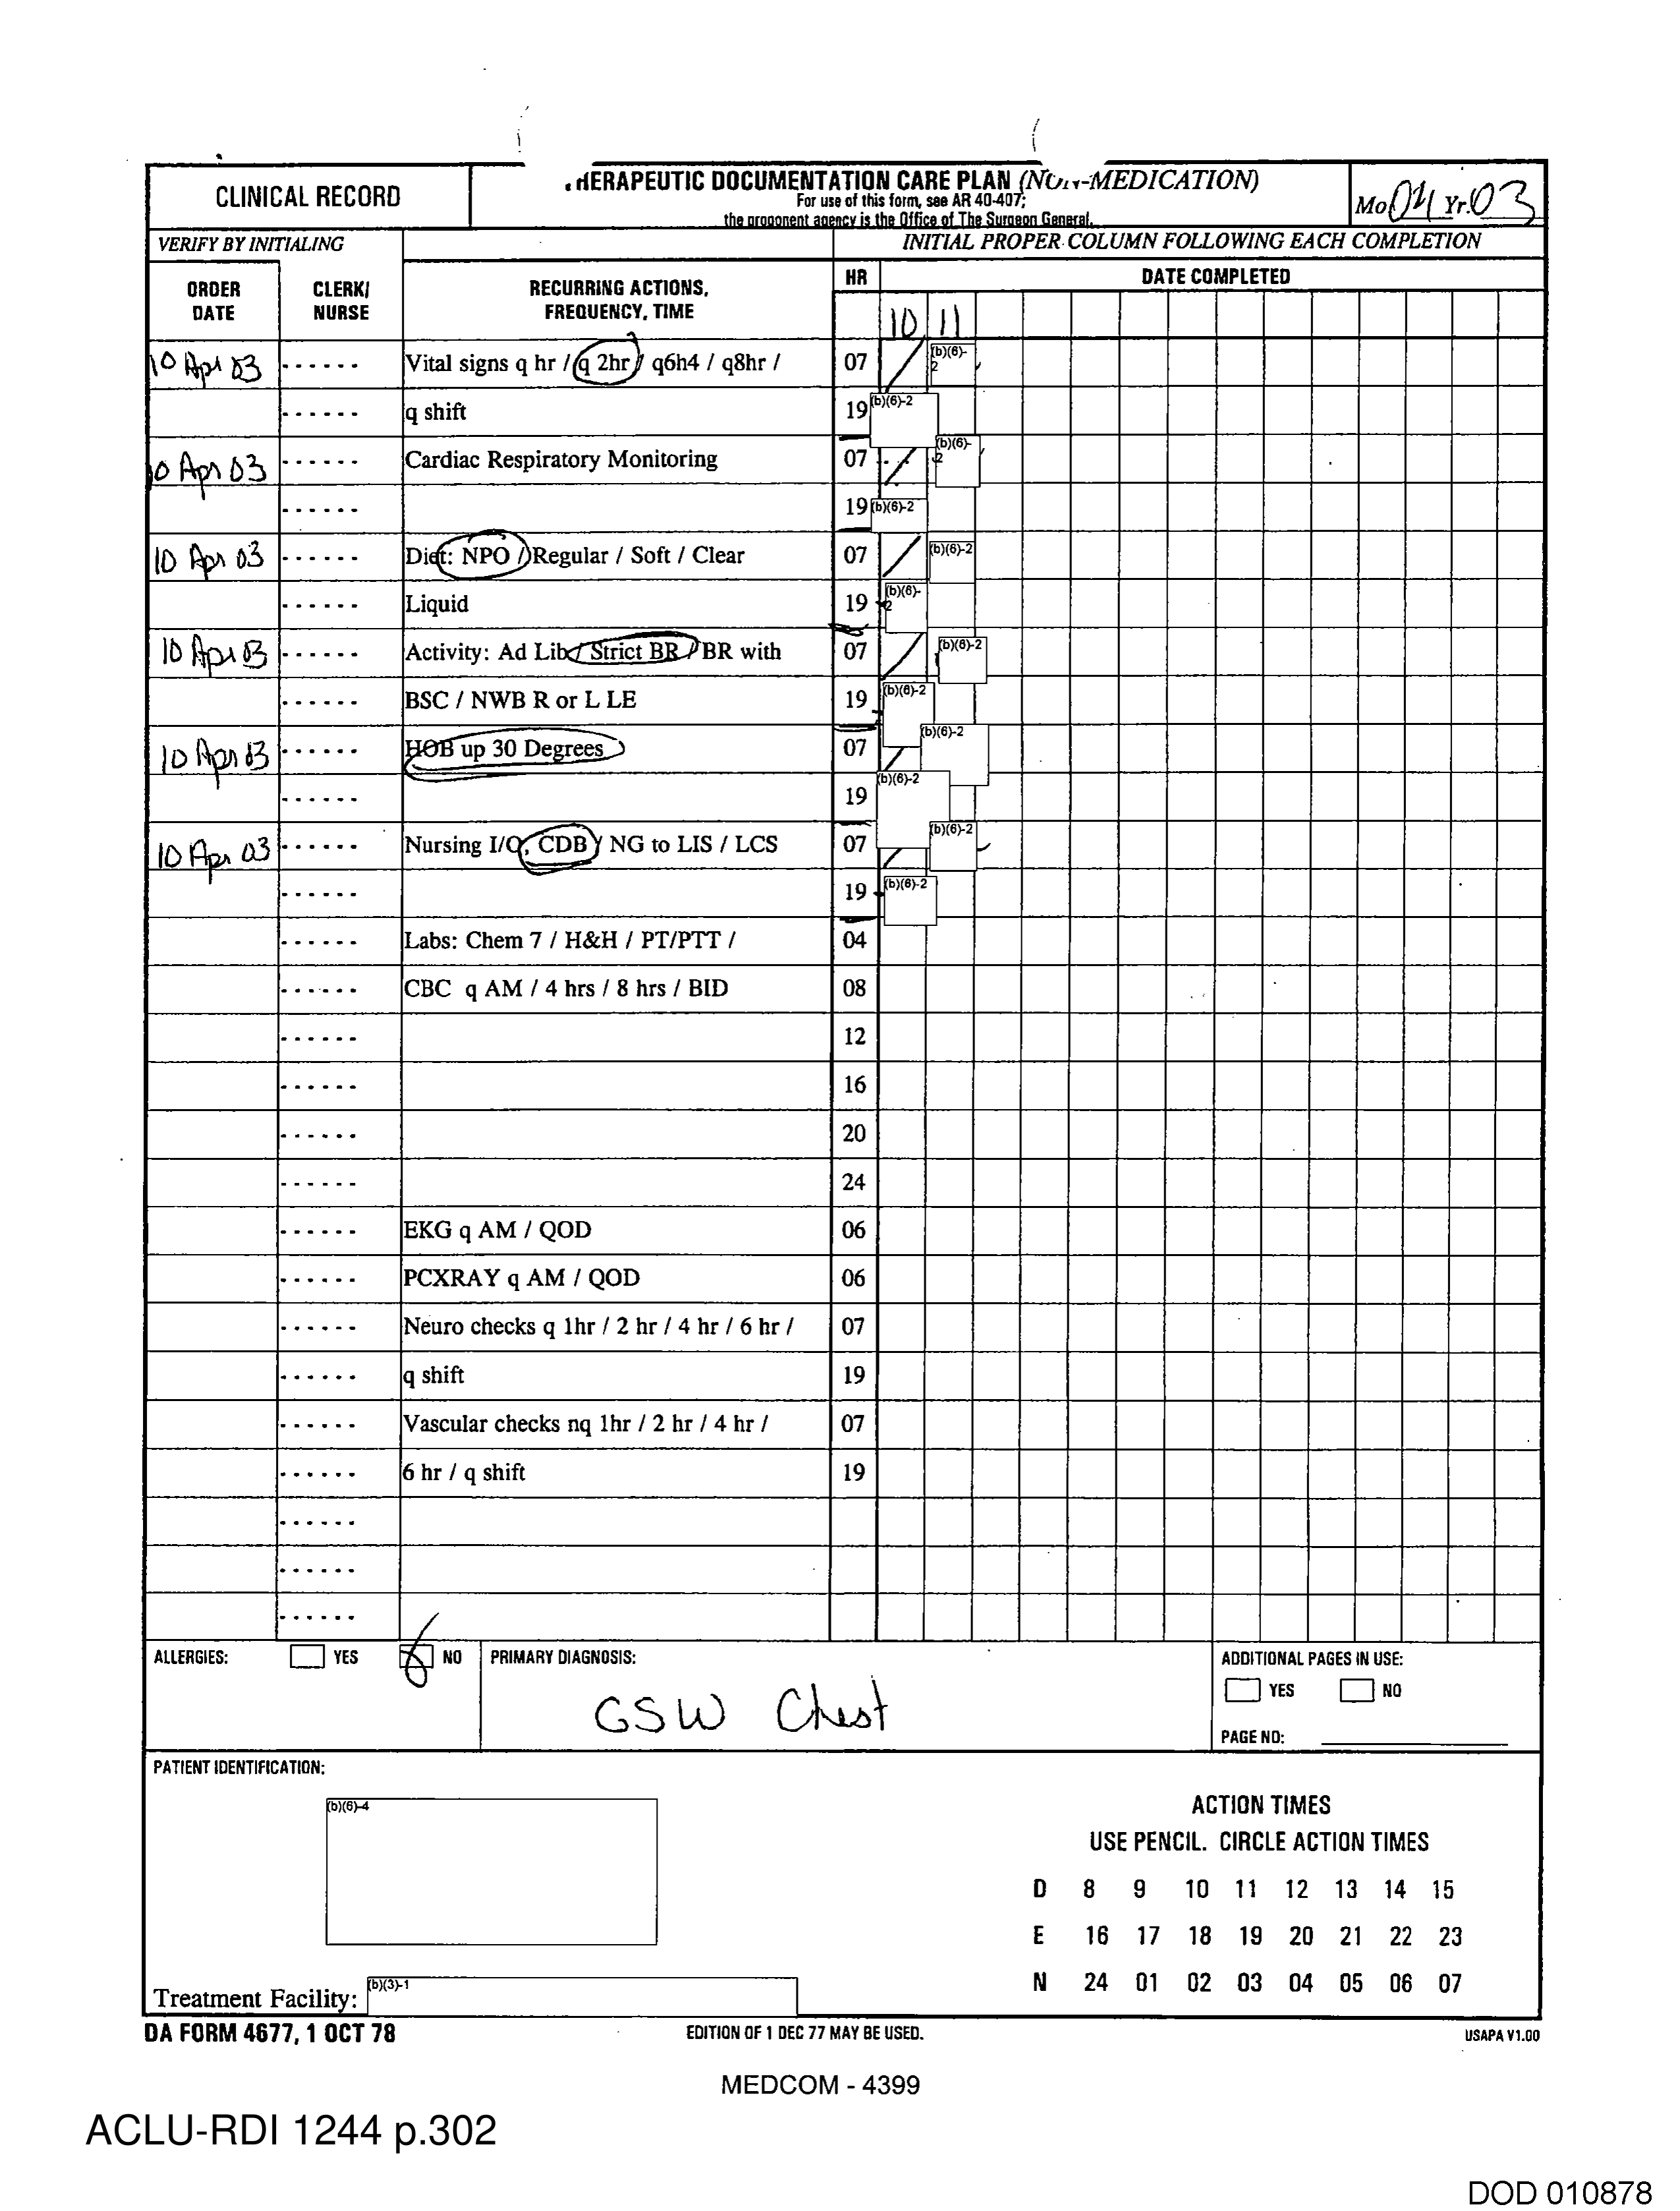 CLINICAL RECORD
HERAPEUTIC DOCUMENTATION CARE PLAN (NON-MEDICATION)
For use of this form, see AR 40-407;
the proponent agency is the Office of The Surgeon General.
Mo 04 Yr. 03
VERIFY BY INITIALING
INITIAL PROPER COLUMN FOLLOWING EACH COMPLETION
ORDER DATE
CLERK/ NURSE
RECURRING ACTIONS, FREQUENCY, TIME
HR
DATE COMPLETED
10 11
10 Apr 03 ------ Vital signs q hr / q 2hr / q6h4 / q8hr / 07 / (b)(6)-2
------ q shift 19 (b)(6)-2
10 Apr 03 ------ Cardiac Respiratory Monitoring 07 / (b)(6)-2
------ 19 (b)(6)-2
10 Apr 03 ------ Diet: NPO / Regular / Soft / Clear 07 / (b)(6)-2
------ Liquid 19 (b)(6)-2
10 Apr 03 ------ Activity: Ad Lib / Strict BR / BR with 07 / (b)(6)-2
------ BSC / NWB R or L LE 19 (b)(6)-2
10 Apr 03 ------ HOB up 30 Degrees 07 / (b)(6)-2
------ 19 (b)(6)-2
10 Apr 03 ------ Nursing I/O, CDB / NG to LIS / LCS 07 / (b)(6)-2
------ 19 (b)(6)-2
------ Labs: Chem 7 / H&H / PT/PTT / 04
------ CBC q AM / 4 hrs / 8 hrs / BID 08
------ 12
------ 16
------ 20
------ 24
------ EKG q AM / QOD 06
------ PCXRAY q AM / QOD 06
------ Neuro checks q 1hr / 2 hr / 4 hr / 6 hr / 07
------ q shift 19
------ Vascular checks nq 1hr / 2 hr / 4 hr / 07
------ 6 hr / q shift 19
------
------
------
ALLERGIES: YES NO
PRIMARY DIAGNOSIS:
GSW Chest
ADDITIONAL PAGES IN USE:
YES NO
PAGE NO:
PATIENT IDENTIFICATION:
(b)(6)-4
ACTION TIMES
USE PENCIL. CIRCLE ACTION TIMES
D 8 9 10 11 12 13 14 15
E 16 17 18 19 20 21 22 23
N 24 01 02 03 04 05 06 07
Treatment Facility: (b)(3)-1
DA FORM 4677, 1 OCT 78
EDITION OF 1 DEC 77 MAY BE USED.
USAPA V1.00
MEDCOM - 4399
ACLU-RDI 1244 p.302
DOD 010878